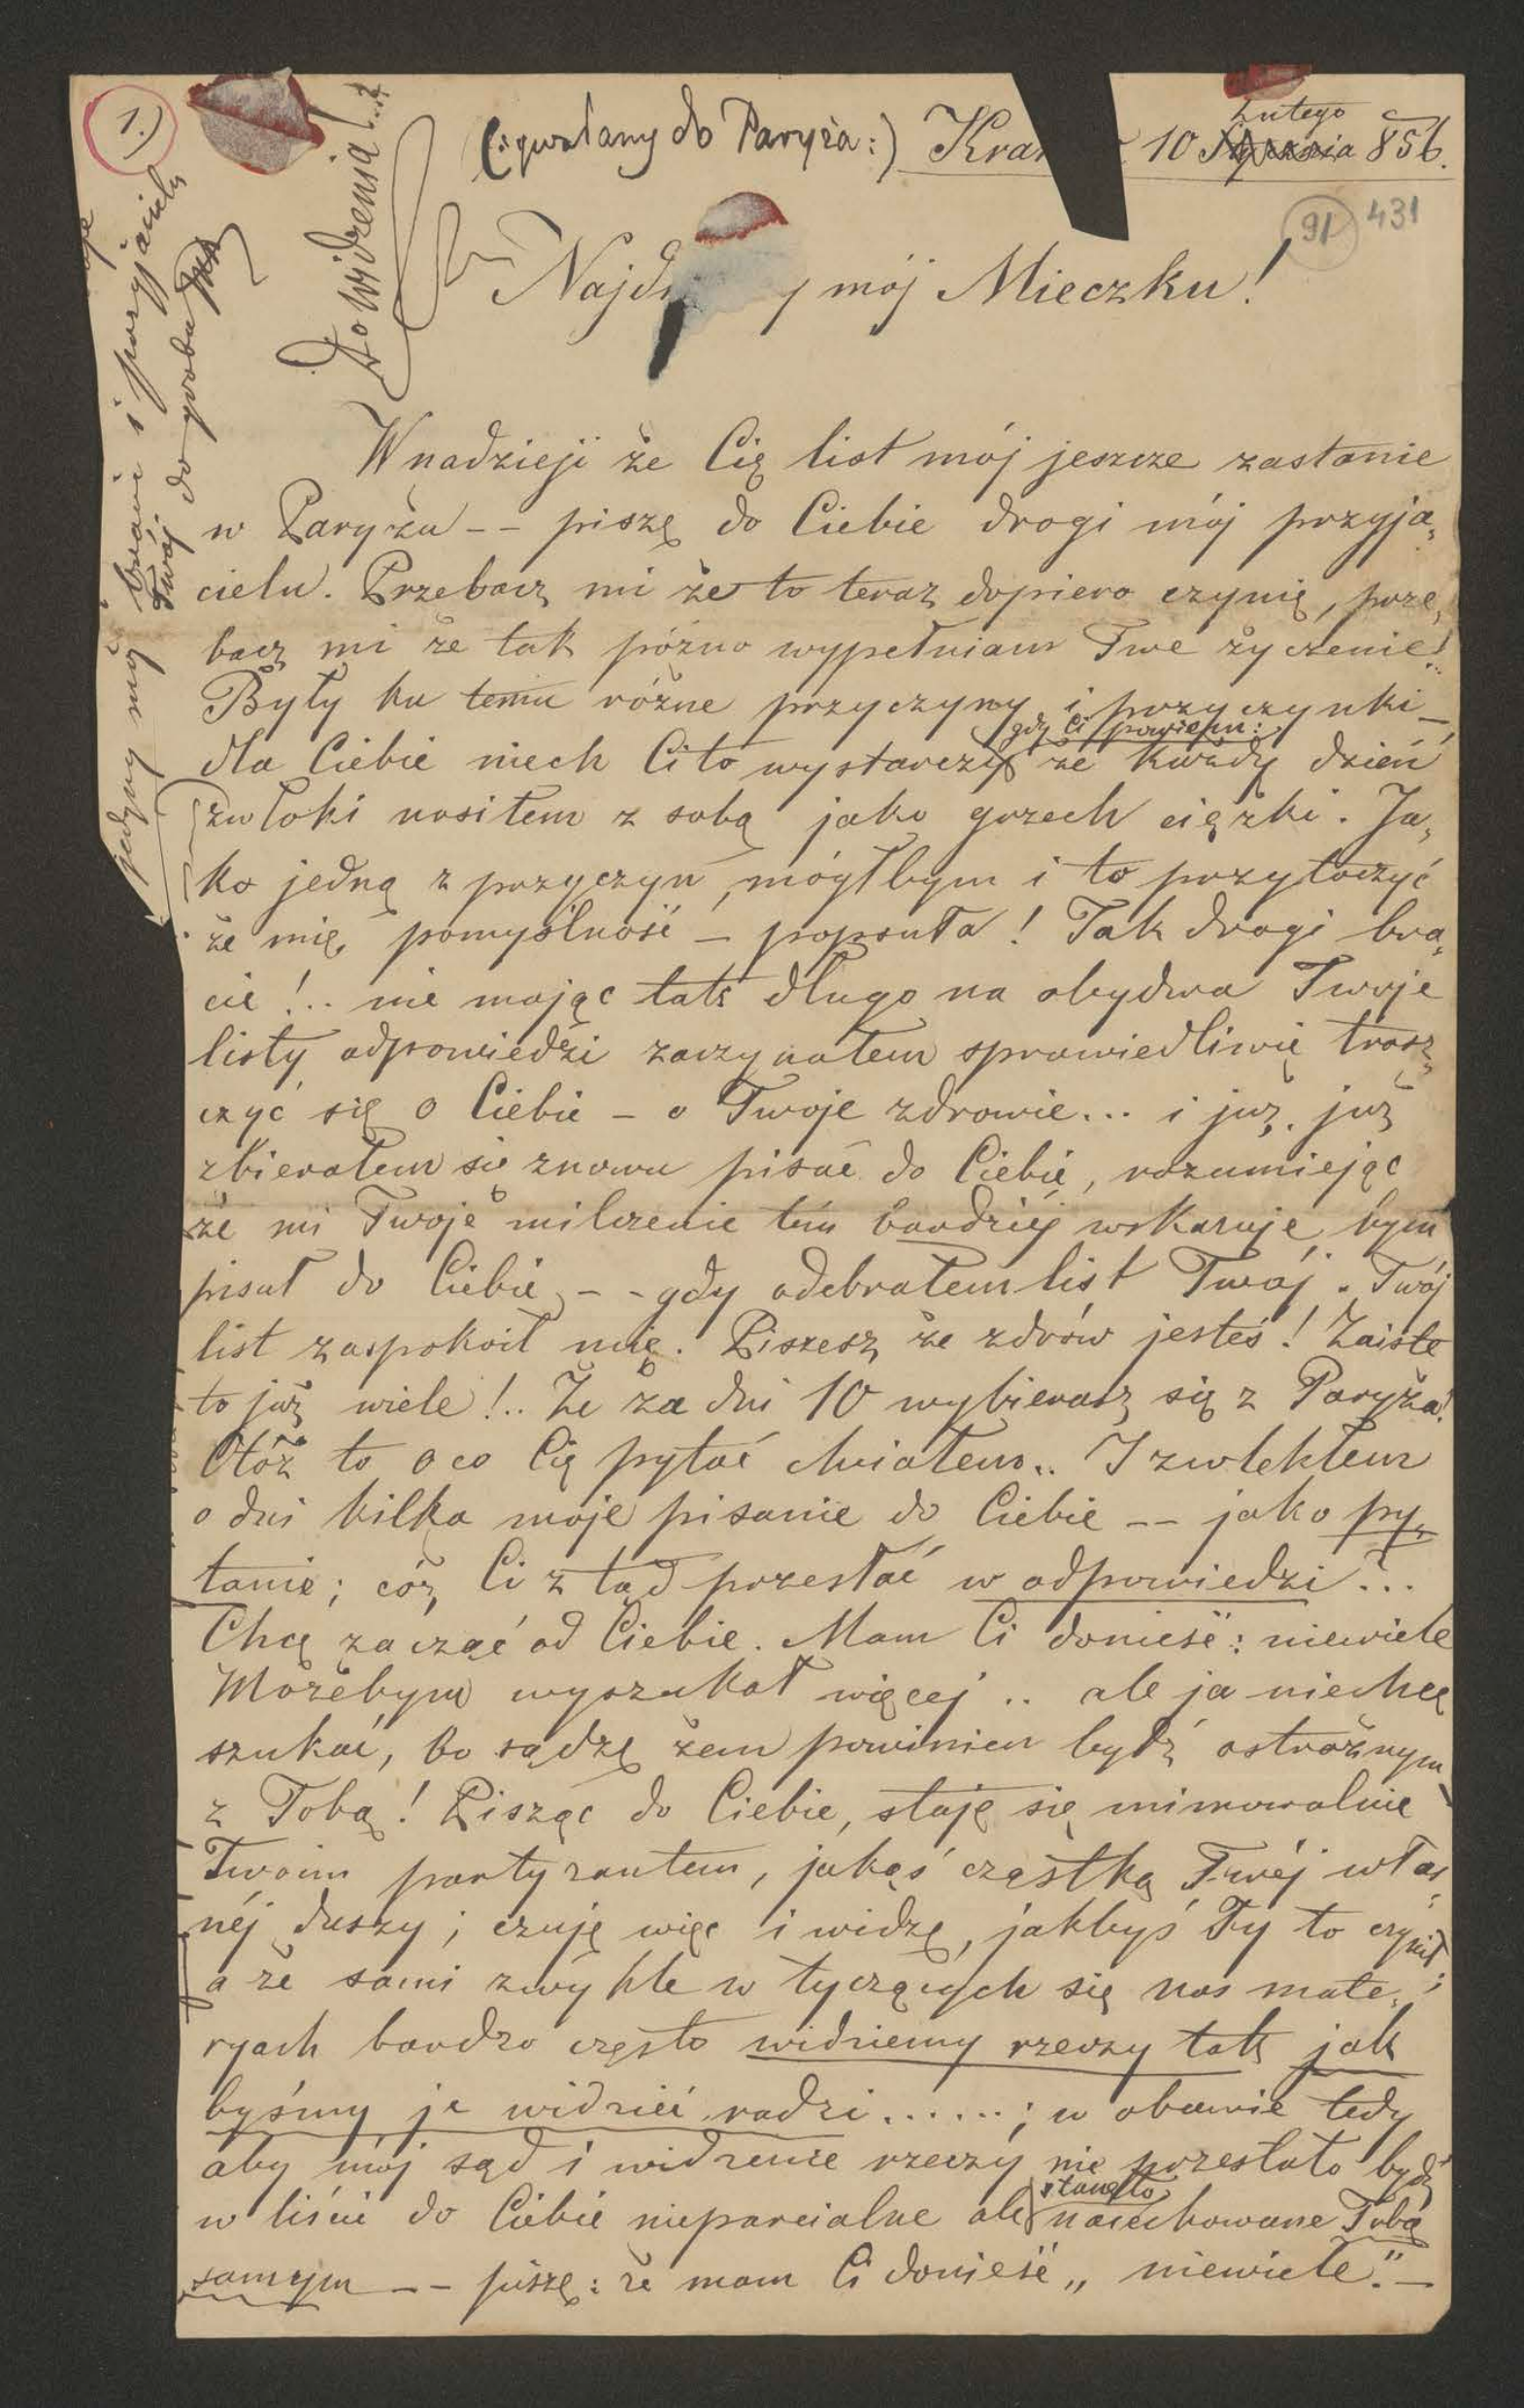 1.)
(: pisany do Paryża :) Kra 10 Stycznia Lutego 856.
91 431
Do widzenia!..
jedyny mój bracie i przyjacielu
Twój do grobu
Najdr y mój Mieczku!
W nadzieji że Cię list mój jeszcze zastanie
w Paryżu -- piszę do Ciebie drogi mój przyja„
cielu. Przebacz mi że to teraz dopiero czynię, prze„
bacz mi że tak późno wypełniam Twe życzenie!..
Były ku temu różne przyczyny i przyczynki —
gdy Ci powiem:
dla Ciebie niech Ci to wystarczy że każdy dzień
zwłoki nosiłem z sobą jako grzech ciężki. Ja„
ko jedną z przyczyn, mógłbym i to przytoczyć
że mię pomyślność — popsuła! Tak drogi bra„
cie!.. nie mając tak długo na obydwa Twoje
listy odpowiedzi zaczynałem sprawiedliwie trosz„
czyć się o Ciebie — o Twoje zdrowie... i już, już
zbierałem się znowu pisać do Ciebie, rozumiejąc
że mi Twoje milczenie tém bardziéj wskazuje, bym
pisał do Ciebie, -- gdy odebrałem list Twój. Twój
list zaspokoił mię. Piszesz że zdrów jesteś! Zaiste
to już wiele!.. Że za dni 10 wybierasz się z Paryża!
Otóż to o co Cię pytać chciałem.. I zwlekłem
o dni kilka moje pisanie do Ciebie -- jako py„
tanie; cóż Ci z tąd przesłać w odpowiedzi?..
Chcę zacząć od Ciebie. Mam Ci donieść: niewiele
Możebym wyszukał więcej .. ale ja niechcę
szukać, bo sądzę żem powinien bydź ostrożnym
z Tobą! Pisząc do Ciebie, staję się mimowolnie
Twoim partyzantem, jakąś cząstką Twéj włas„
néj duszy; czuję więc i widzę, jakbyś Ty to czynił;
a że sami zwykle w tyczących się nas mate„
ryach bardzo często widziemy rzeczy tak jak
byśmy je widzieć radzi......; w obawie tedy
aby mój sąd i widzenie rzeczy nie przestało bydź
stanęło
w liście do Ciebie nieparcialne ale nacechowane Tobą
samym -- piszę: że mam Ci donieść „niewiele". —